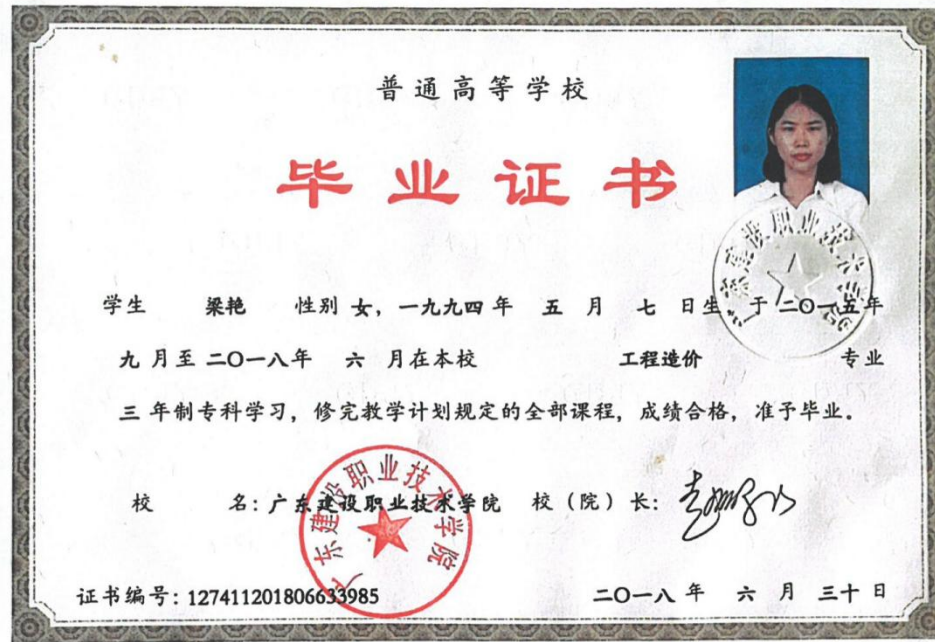 普通高等学校
毕业证书
学生 梁艳 性别 女，一九九四 年 五 月 七 日生，于 二〇一五 年
九 月至 二〇一八 年 六 月在本校 工程造价 专业
三 年制专科学习，修完教学计划规定的全部课程，成绩合格，准予毕业。
校 名：广东建设职业技术学院 校（院）长：
广东建设职业技术学院
广东建设职业技术学院
证书编号：127411201806633985 二〇一八 年 六 月 三十 日